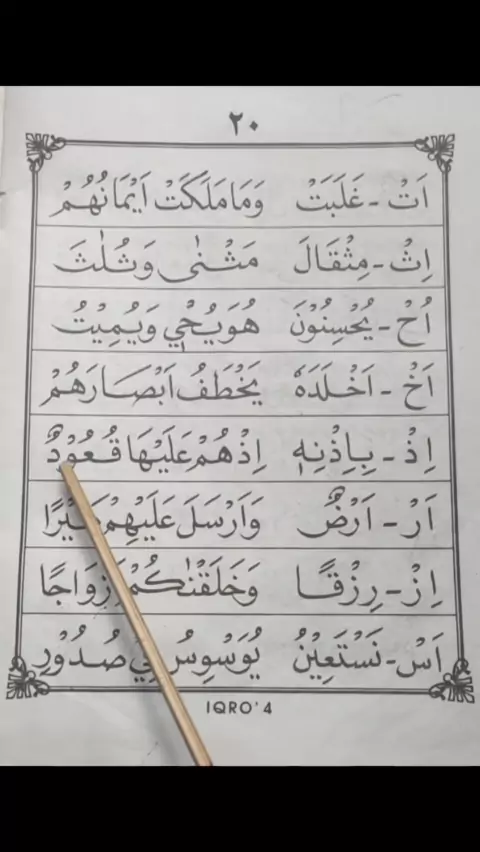 ٢٠
اَتْ - غَلَبَتْ وَمَا مَلَكَتْ اَيْمَانُهُمْ
اِثْ - مِثْقَالَ مَثْنٰى وَثُلٰثَ
اُحْ - يُحْسِنُوْنَ هُوَ يُحْيٖ وَيُمِيْتُ
اَخْ - اَخْلَدَهٗ يَخْطَفُ اَبْصَارَهُمْ
اِذْ - بِاِذْنِهٖ اِذْهُمْ عَلَيْهَا قُعُوْدٌ
اَرْ - اَرْضٌ وَاَرْسَلَ عَلَيْهِمْ
اِزْ - رِزْقًا وَخَلَقْنٰكُمْ اَزْوَاجًا
اَسْ - نَسْتَعِيْنُ يُوَسْوِسُ فِيْ صُدُوْرِ
IQRO' 4